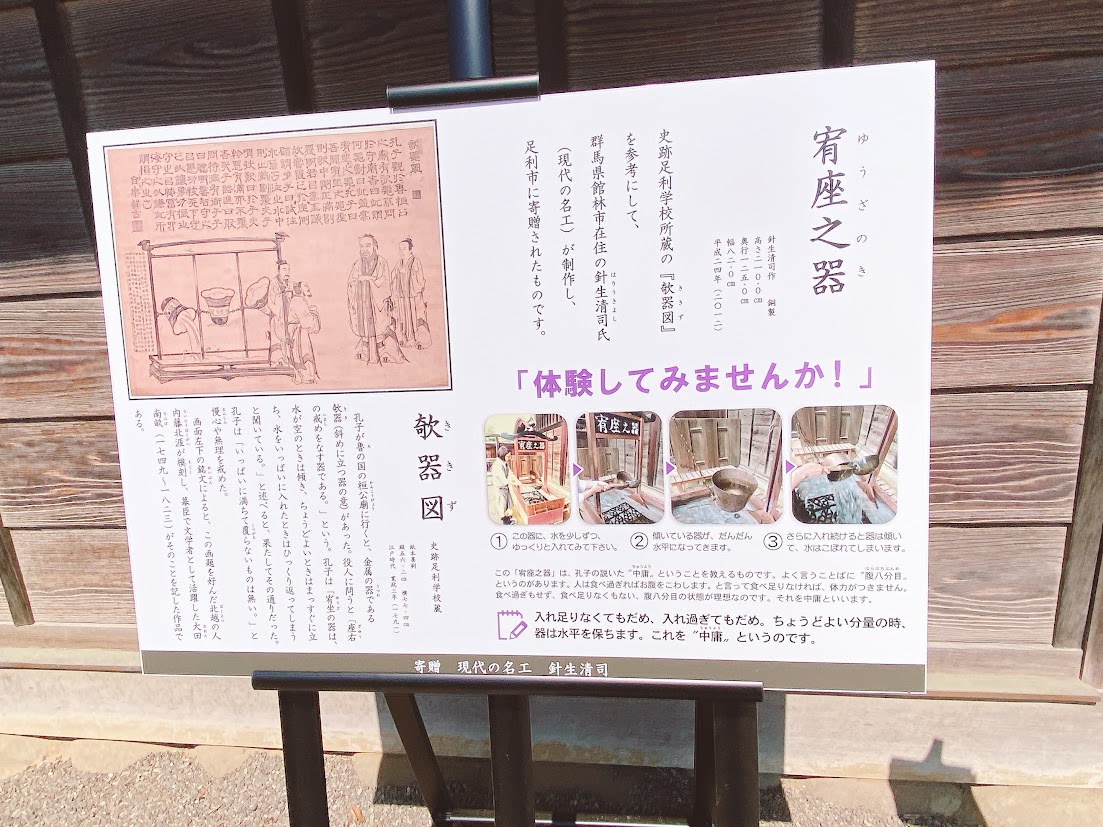 宥座之器
ゆうざのき
針生清司作 銅製
高さ二一〇・〇㎝
奥行一二五・〇㎝
幅八二・〇㎝
平成二四年（二〇一二）
史跡足利学校所蔵の『欹器図』
ききず
を参考にして、
群馬県館林市在住の針生清司氏
はりうきよし
（現代の名工）が制作し、
足利市に寄贈されたものです。
「体験してみませんか！」
宥座之器
宥座之器
①この器に、水を少しずつ、
ゆっくりと入れてみて下さい。
②傾いている器が、だんだん
水平になってきます。
③さらに入れ続けると器は傾い
て、水はこぼれてしまいます。
この「宥座之器」は、孔子の説いた〝中庸〟ということを教えるものです。よく言うことばに〝腹八分目〟
ちゅうよう
はらはちぶんめ
というのがあります。人は食べ過ぎればお腹をこわします。と言って食べ足りなければ、体力がつきません。
食べ過ぎもせず、食べ足りなくもない、腹八分目の状態が理想なのです。それを中庸といいます。
入れ足りなくてもだめ、入れ過ぎてもだめ。ちょうどよい分量の時、
器は水平を保ちます。これを〝中庸〟というのです。
ちゅうよう
欹器図
ききず
史跡足利学校蔵
紙本墨刷
江戸時代 寛政三年（一七九一）
孔子が魯の国の桓公廟に行くと、金属の器である
欹器（斜めに立つ器の意）があった。役人に問うと「座右
の戒めをなす器である。」という。孔子は「宥坐の器は、
水が空のときは傾き、ちょうどよいときはまっすぐに立
ち、水をいっぱいに入れたときはひっくり返ってしまう
と聞いている。」と述べると、果たしてその通りだった。
孔子は「いっぱいに満ちて覆らないものは無い。」と
慢心や無理を戒めた。
画面左下の銘文によると、この画題を好んだ北越の人
内藤北涯が模刻し、幕臣で文学者として活躍した大田
南畝（一七四九～一八二三）がそのことを記した作品で
ある。
寄贈 現代の名工 針生清司